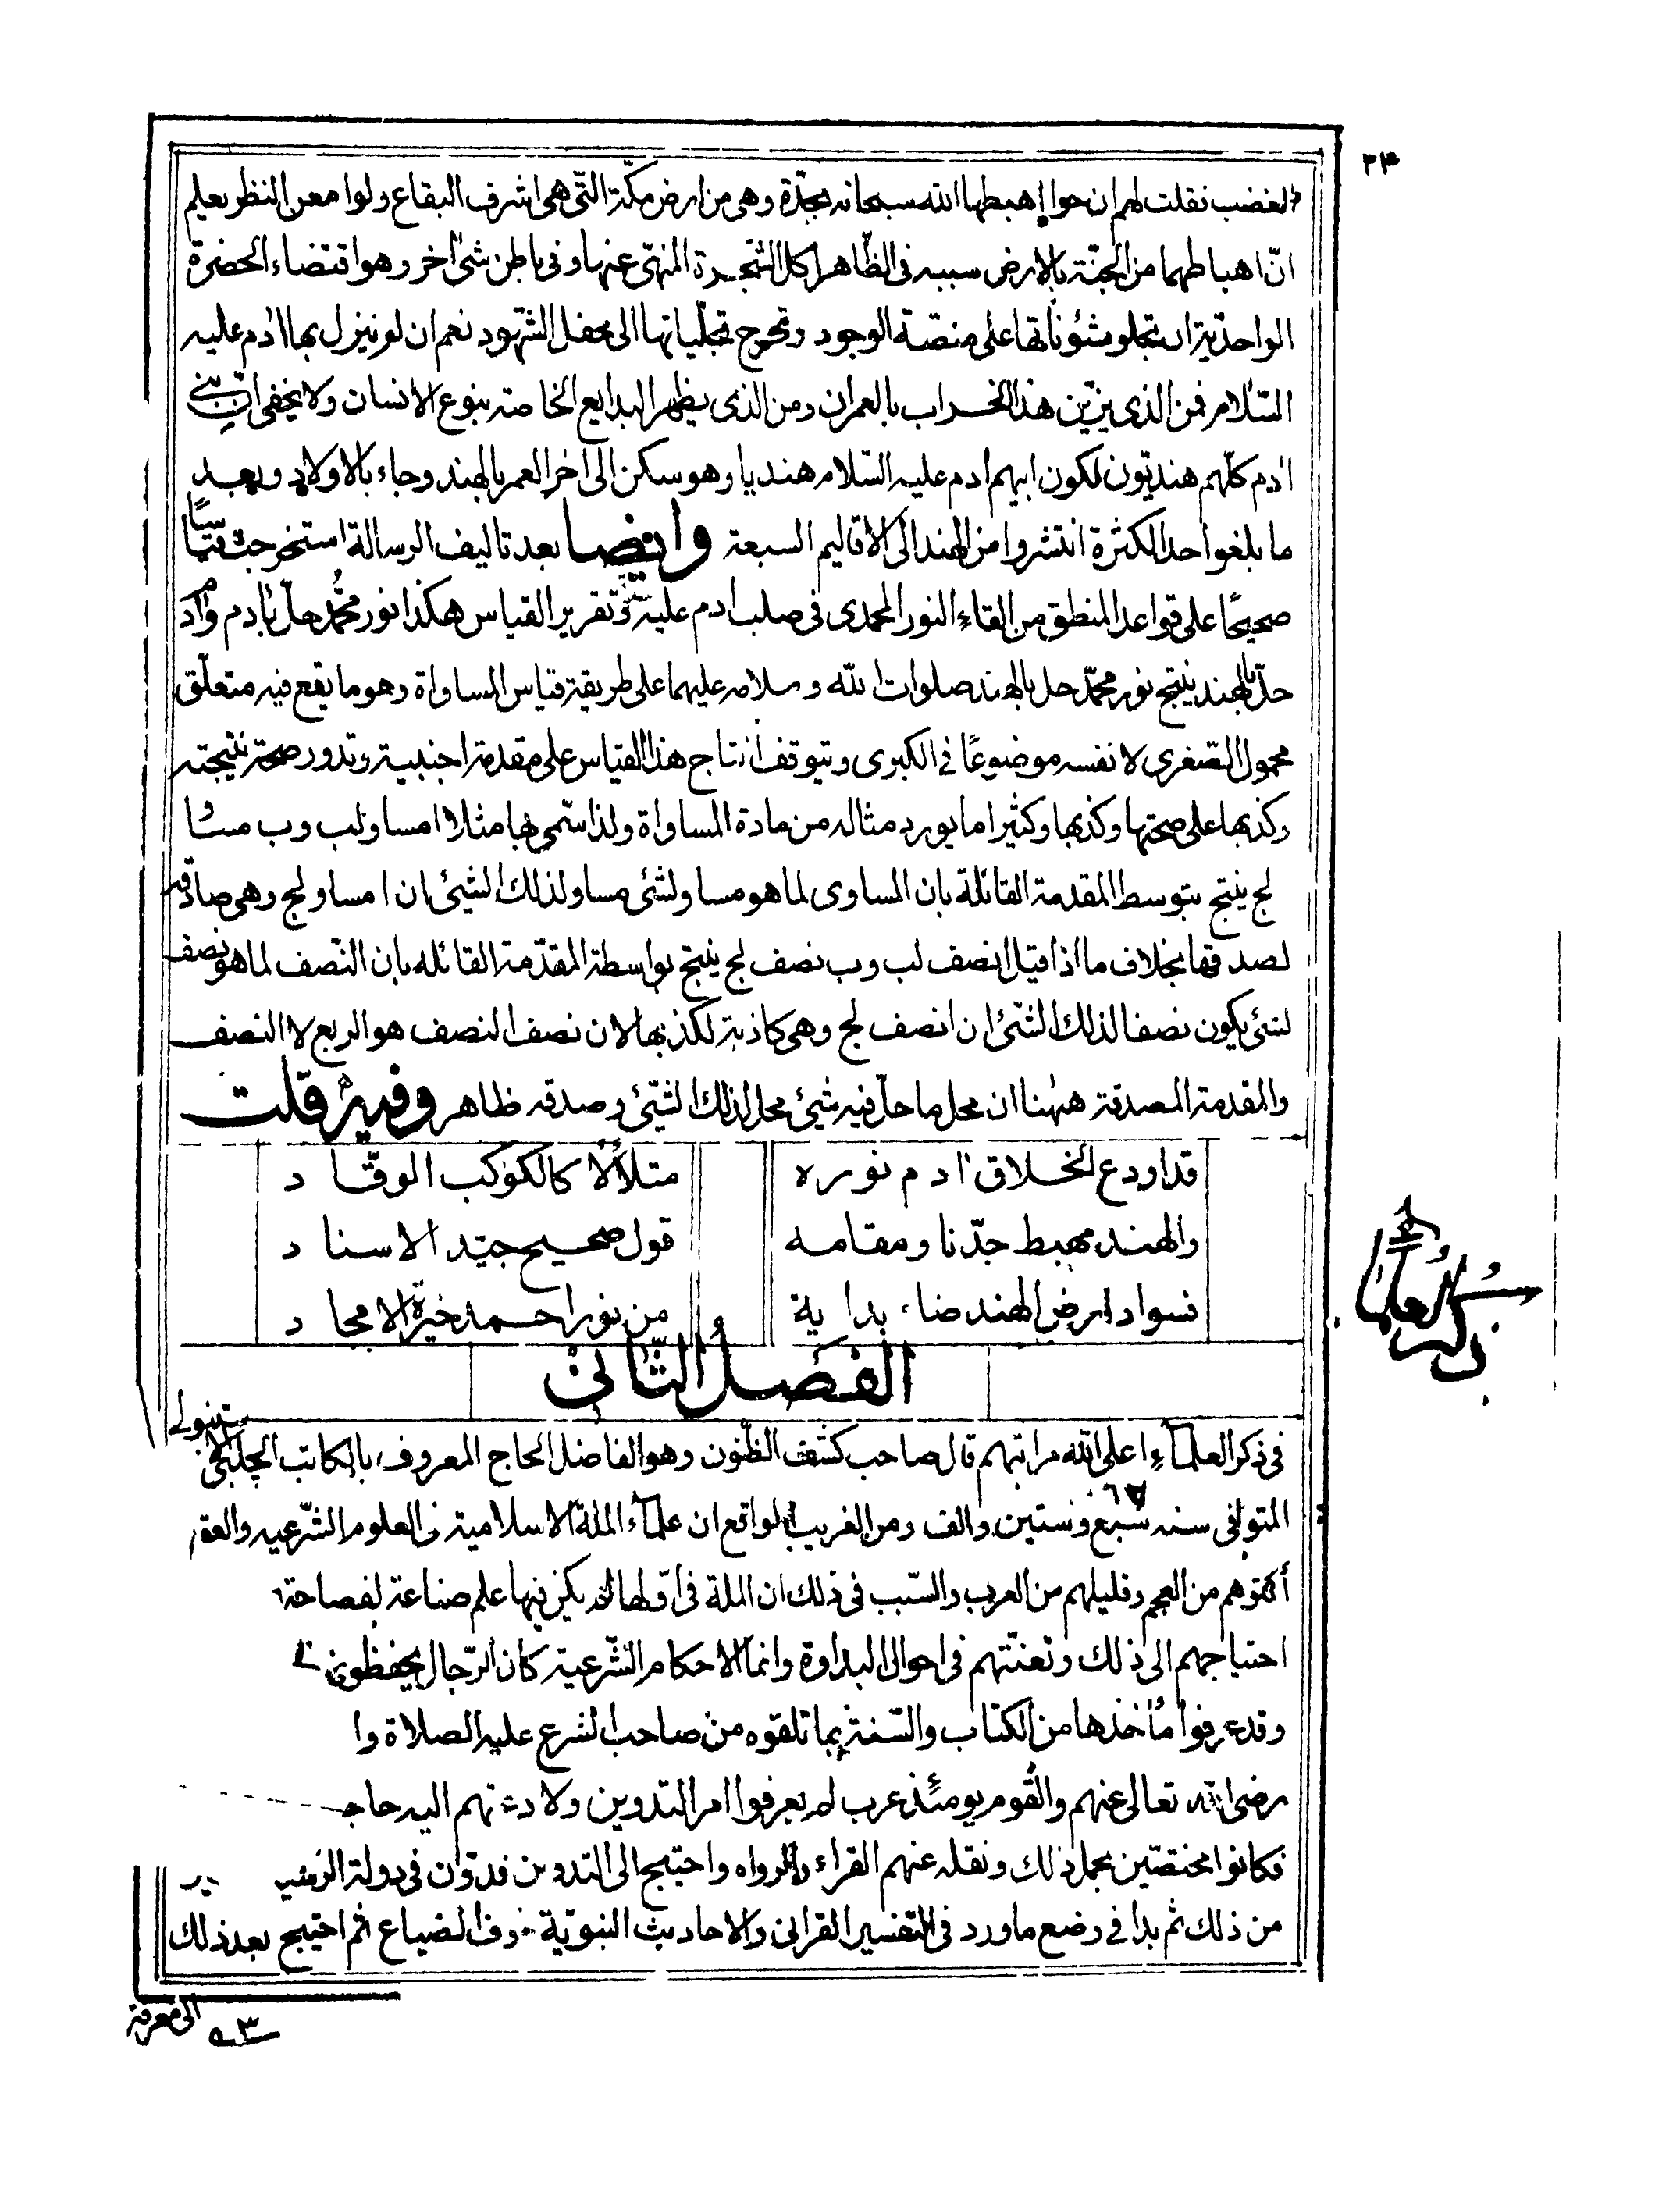 ۲۴
الغضب فقلت لهم ان حوا اهبطها الله سبحانه بجدّة وهى من ارض مكّة التّى هى اشرف البقاع ولو امعن النظر يعلم
انّ اهباطهما من الجنّة بالارض سببه فى الظّاهر اكل الشّجرة المنهىّ عنها وفى باطن شئ اٰخر وهو اقتضاء الحضرة
الواحديّة ان تجلو شئوناتها على منصّة الوجود وتخرج تجلّياتها الى محفل الشّهود نعم ان لو ينزل بها اٰدم عليه
السّلام فمن الذى يزيّن هذا الخراب بالعمران ومن الذى يظهر البدايع الخاصة بنوع الانسان ولا يخفى انّ بنى
اٰدم كلّهم هنديّون لكون ابيهم اٰدم عليه السّلام هنديا وهو سكن الى اٰخر العمر بالهند وجاء بالاولاد وبعد
ما بلغوا حد الكثرة انتشروا من الهند الى الاقاليم السبعة وايضا بعد تاليف الرسالة استخرجت قياسًا
صحيحًا على قواعد المنطق من القاء النور المحمدى فى صلب اٰدم عليه وتقرير القياس هكذا نور محمّد حلّ باٰدم واٰدم
حلّ بالهند ينتج نور محمّد حل بالهند صلوات الله وسلامه عليهما على طريقة قياس المساواة وهو ما يقع فيه متعلّق
محمول الصّغرى لا نفسه موضوعًا فى الكبرى ويتوقف انتاج هذا القياس على مقدمة اجنبية وتدور صحة نتيجته
وكذبها على صحتها وكذبها وكثيرا ما يورد مثاله من مادة المساواة ولذا سمّى بها مثلا ا مساو لب وب مساو
لج ينتج بتوسط المقدمة القائلة بان المساوى لما هو مساو لشئ مساو لذلك الشيئ ان ا مساو لج وهى صادقة
لصدقها بخلاف ما اذا قيل ا نصف لب وب نصف لج ينتج بواسطة المقدّمة القائله بان النّصف لما هو نصف
لشئ يكون نصفا لذلك الشّئ ان ا نصف لج وهى كاذبة لكذبها لان نصف النصف هو الربع لا النصف
والمقدمة المصدقة ههٰنا ان محل ما حلّ فيه شيئ محل لذلك الشّيئ وصدقه ظاهر وفيه قلت
قد اودع الخلاق اٰدم نوره متلألأ كالكوكب الوقّاد
والهند مهبط جدّنا ومقامه قول صحيح جيّد الاسناد
فسواد ارض الهند ضاء بداية من نور احمد خيرة الامجاد
ذكر العلماء
الفصل الثّانى
فى ذكر العلمآء اعلى الله مراتبهم قال صاحب كشف الظّنون وهو الفاضل الحاج المعروف بالكاتب الچلبى
المتوفى سنه سبع وستين والف ومن الغريب الواقع ان علمآء الملة الاسلامية فى العلوم الشّرعيه والعقلية
أكثرهم من العجم وقليلهم من العرب والسّبب فى ذلك ان الملة فى اوّلها لم يكن فيها علم صناعة
احتياجهم الى ذلك فى احوال البداوة وانما الاحكام الشّرعية كان الرّجال يحفظون
وقد عرفوا مأخذها من الكتاب والسّنة بما تلقوه من صاحب الشرع عليه الصلاة وا
رضى الله تعالى عنهم والقوم يومئذ عرب لم يعرفوا امر التدوين ولا دعتهم اليه حاجـ
فكانوا مختصّين بحمل ذلك ونقله عنهم القراء والرواه واحتيج الى التدوين فدوّن فى دولة الرشيد
من ذلك ثم بدا فى وضع ما ورد فى التفسير القرانى والاحاديث النبويّة خوف الضياع ثم احتيج بعد ذلك
الى معرفة
۵۳